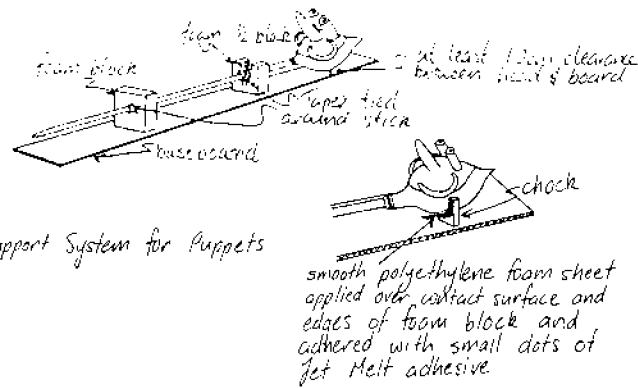 foam block
foam block
at least 1/2" clearance
between head & board
tapes tied
around stick
baseboard
chock
pport System for Puppets
smooth polyethylene foam sheet
applied over contact surface and
edges of foam block and
adhered with small dots of
Jet Melt adhesive